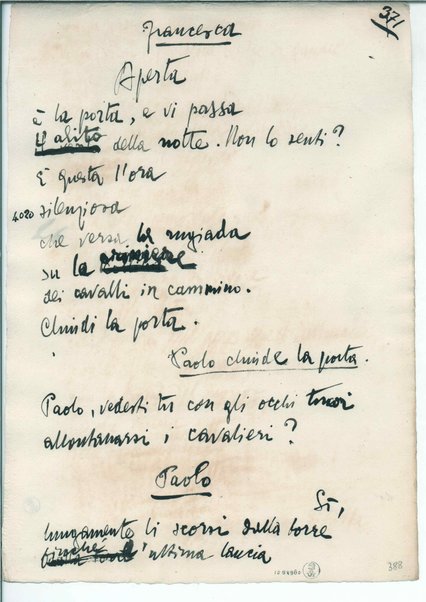 371
Francesca
Aperta
è la porta, e vi passa
il alito della notte. Non lo senti?
È questa l'ora
4020 silenziosa
che versa la rugiada
su le criniere
dei cavalli in cammino.
Chiudi la porta.
Paolo chiude la porta.
Paolo, vedesti tu con gli occhi tuoi
allontanarsi i cavalieri?
Paolo
Sì,
lungamente li scorsi dalla torre
l'ultima lancia
388